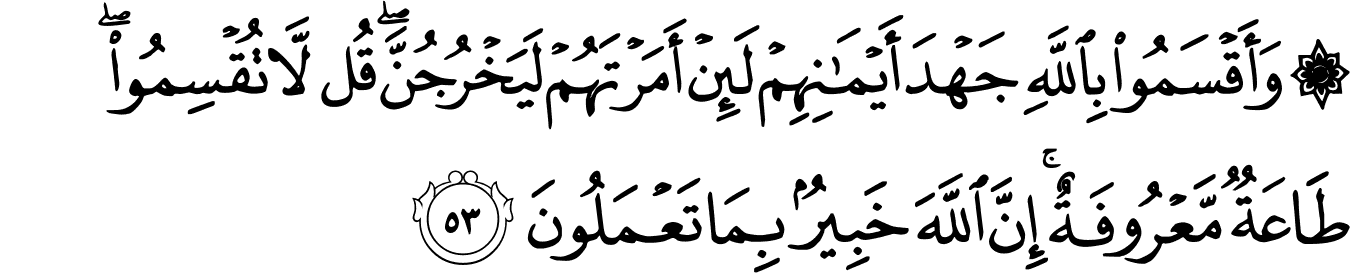 ۞ وَأَقۡسَمُواْ بِٱللَّهِ جَهۡدَ أَيۡمَٰنِهِمۡ لَئِنۡ أَمَرۡتَهُمۡ لَيَخۡرُجُنَّۖ قُل لَّا تُقۡسِمُواْۖ
طَاعَةٞ مَّعۡرُوفَةٌۚ إِنَّ ٱللَّهَ خَبِيرُۢ بِمَا تَعۡمَلُونَ ٥٣